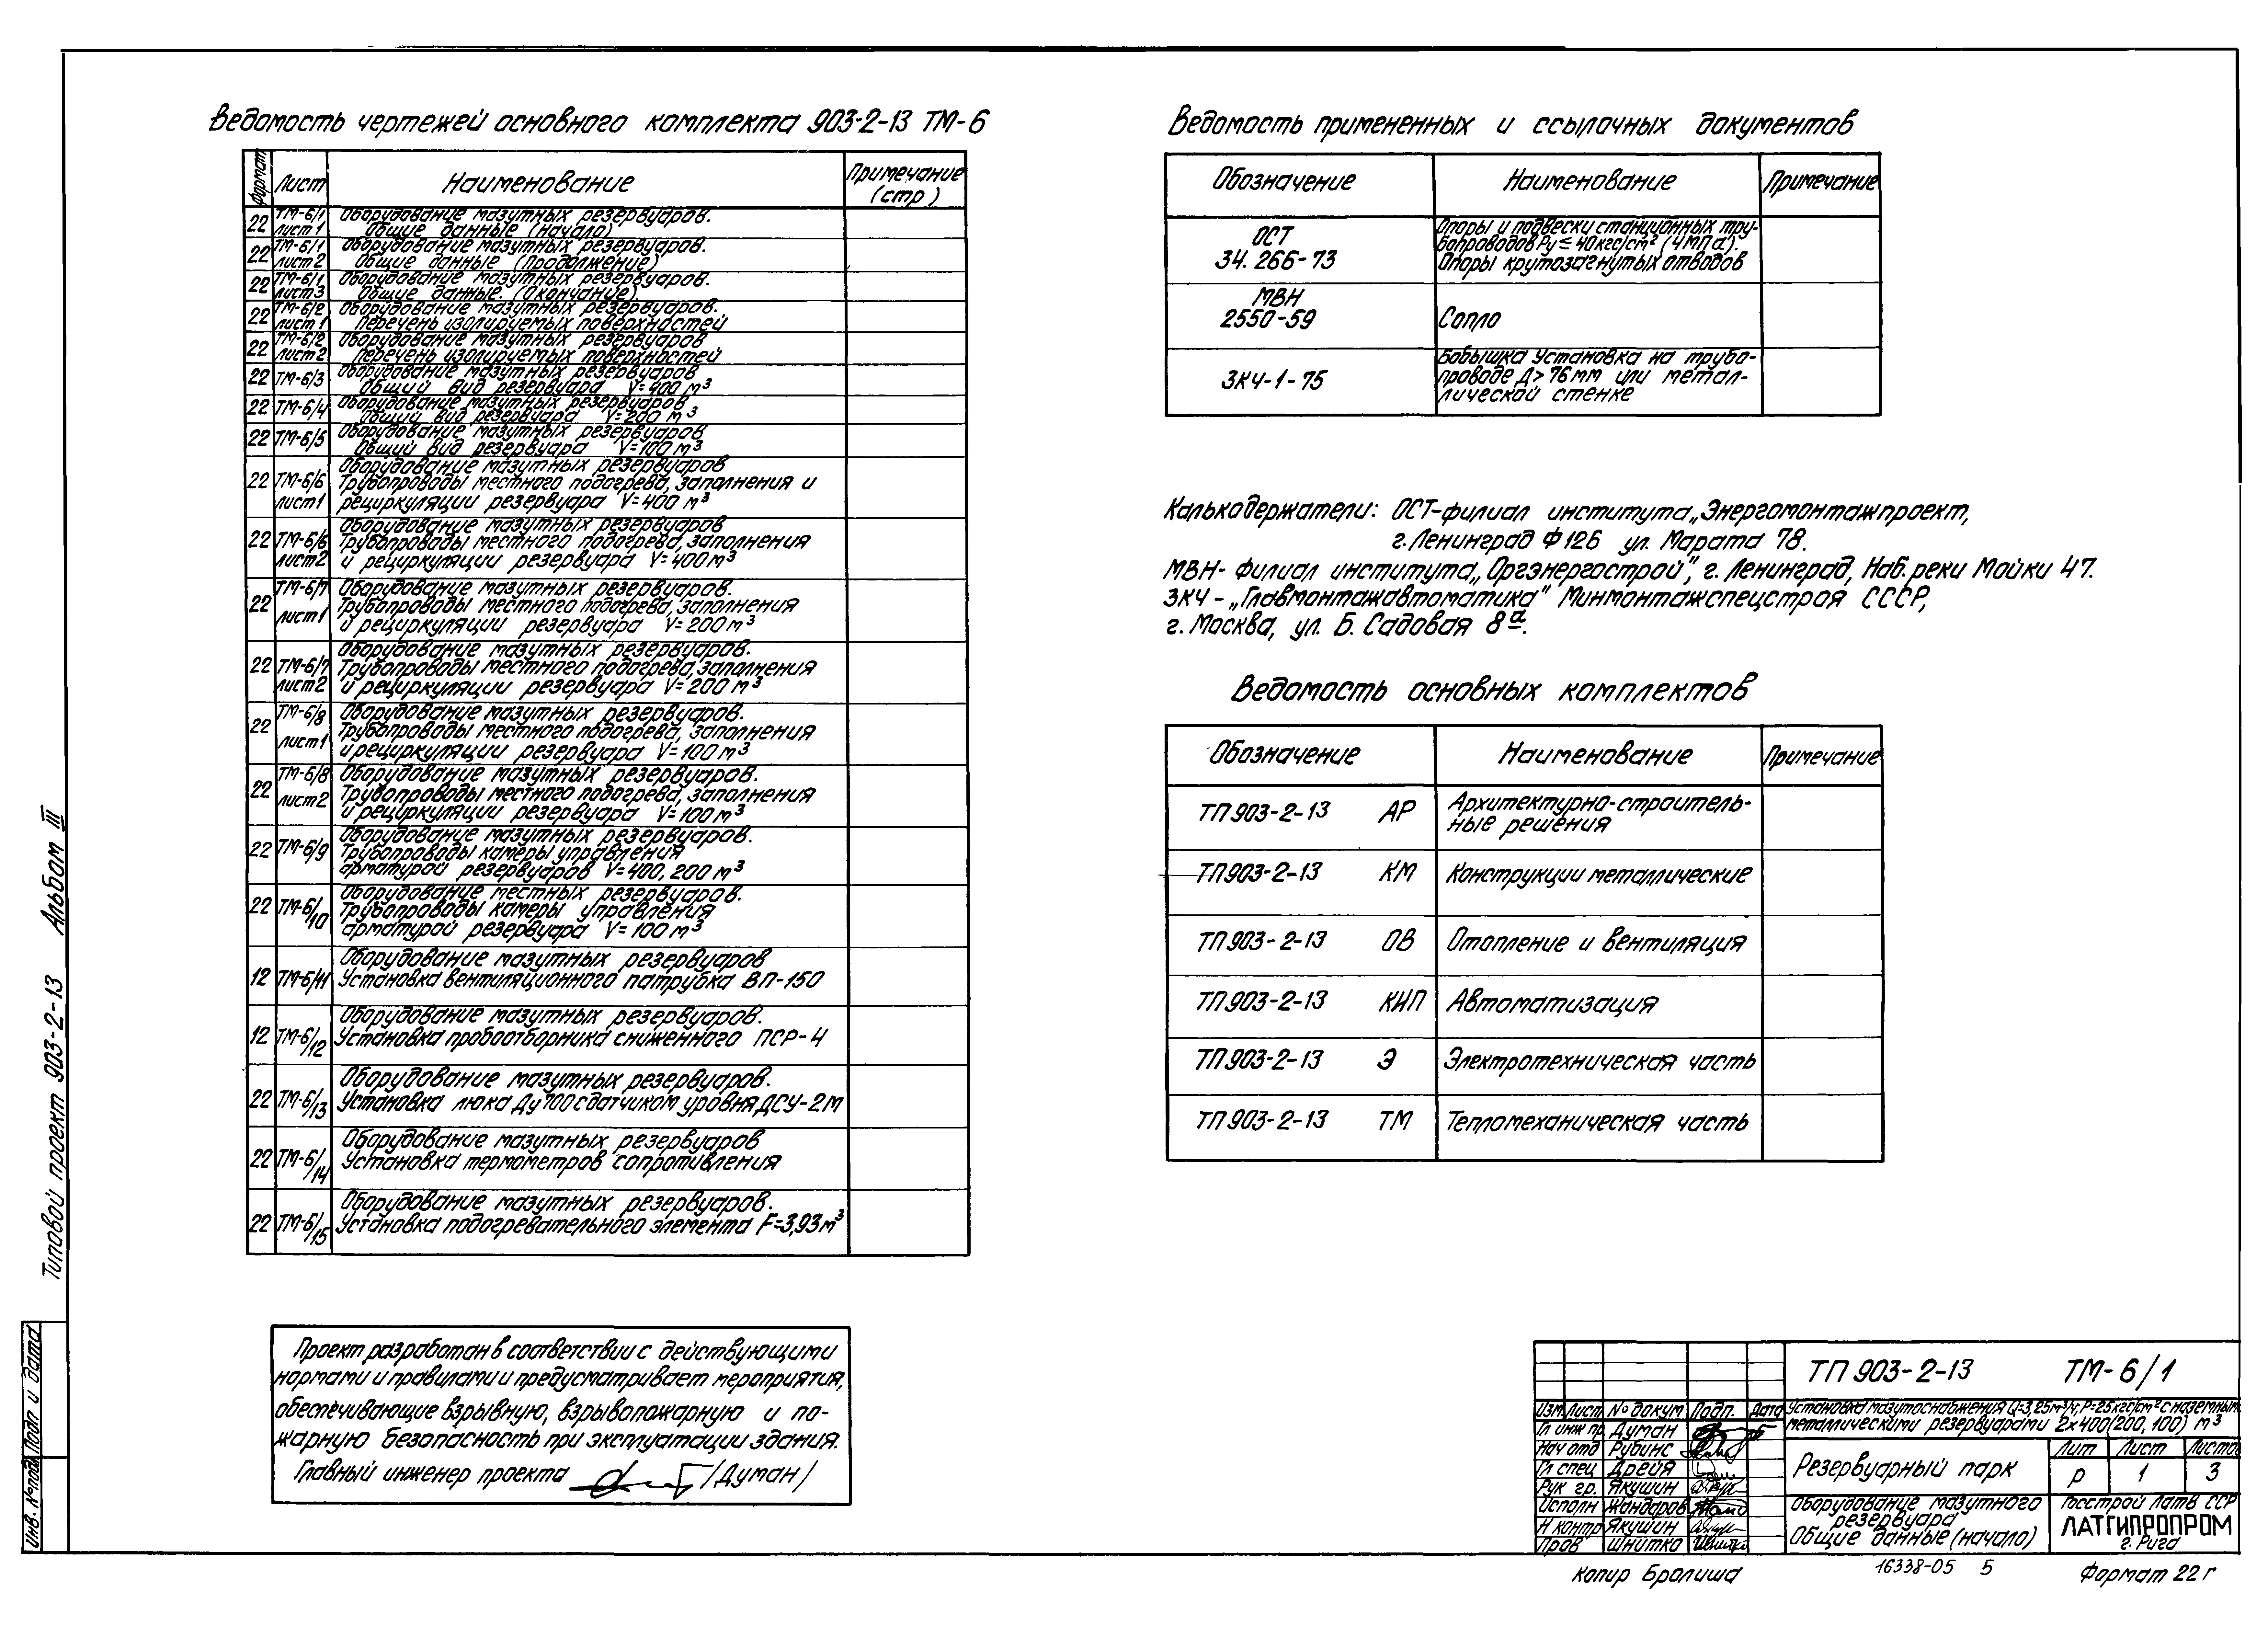 Ведомость чертежей основного комплекта 903-2-13 ТМ-6
Формат Лист Наименование Примечание (стр)
22 ТМ-6/1 лист 1 Оборудование мазутных резервуаров.
Общие данные (начало)
22 ТМ-6/1 лист 2 Оборудование мазутных резервуаров.
Общие данные (продолжение)
22 ТМ-6/1 лист 3 Оборудование мазутных резервуаров.
Общие данные. (Окончание).
22 ТМ-6/2 лист 1 Оборудование мазутных резервуаров.
Перечень изолируемых поверхностей
22 ТМ-6/2 лист 2 Оборудование мазутных резервуаров
Перечень изолируемых поверхностей
22 ТМ-6/3 Оборудование мазутных резервуаров
Общий вид резервуара V=400 м³
22 ТМ-6/4 Оборудование мазутных резервуаров
Общий вид резервуара V=200 м³
22 ТМ-6/5 Оборудование мазутных резервуаров
Общий вид резервуара V=100 м³
22 ТМ-6/6 лист 1 Оборудование мазутных резервуаров
Трубопроводы местного подогрева, заполнения и
рециркуляции резервуара V=400 м³
22 ТМ-6/6 лист 2 Оборудование мазутных резервуаров
Трубопроводы местного подогрева, заполнения
и рециркуляции резервуара V=400 м³
22 ТМ-6/7 лист 1 Оборудование мазутных резервуаров.
Трубопроводы местного подогрева, заполнения
и рециркуляции резервуара V=200 м³
22 ТМ-6/7 лист 2 Оборудование мазутных резервуаров.
Трубопроводы местного подогрева, заполнения
и рециркуляции резервуара V=200 м³
22 ТМ-6/8 лист 1 Оборудование мазутных резервуаров.
Трубопроводы местного подогрева, заполнения
и рециркуляции резервуара V=100 м³
22 ТМ-6/8 лист 2 Оборудование мазутных резервуаров.
Трубопроводы местного подогрева, заполнения
и рециркуляции резервуара V=100 м³
22 ТМ-6/9 Оборудование мазутных резервуаров.
Трубопроводы камеры управления
арматурой резервуаров V=400, 200 м³
22 ТМ-6/10 Оборудование местных резервуаров.
Трубопроводы камеры управления
арматурой резервуара V=100 м³
12 ТМ-6/11 Оборудование мазутных резервуаров
Установка вентиляционного патрубка ВП-150
12 ТМ-6/12 Оборудование мазутных резервуаров.
Установка пробоотборника сниженного ПСР-4
22 ТМ-6/13 Оборудование мазутных резервуаров.
Установка люка Ду700 с датчиком уровня ДСУ-2М
22 ТМ-6/14 Оборудование мазутных резервуаров
Установка термометров сопротивления
22 ТМ-6/15 Оборудование мазутных резервуаров.
Установка подогревательного элемента F=3,93 м³
Проект разработан в соответствии с действующими
нормами и правилами и предусматривает мероприятия,
обеспечивающие взрывную, взрывопожарную и по-
жарную безопасность при эксплуатации здания.
Главный инженер проекта /Думан/
Ведомость примененных и ссылочных документов
Обозначение Наименование Примечание
ОСТ 34. 266-73 Опоры и подвески станционных тру-
бопроводов Ру ≤ 40 кгс/см² (4 МПа).
Опоры крутозагнутых отводов
МВН 2550-59 Сопло
ЗК4-1-75 Бобышка Установка на трубо-
проводе Д>76 мм или метал-
лической стенке
Калькодержатели: ОСТ-филиал института „Энергомонтажпроект,
г. Ленинград Ф 126 ул. Марата 78.
МВН- филиал института „Оргэнергострой”, г. Ленинград, Наб. реки Мойки 47.
ЗК4 - „Главмонтажавтоматика” Минмонтажспецстроя СССР,
г. Москва, ул. Б. Садовая 8ª.
Ведомость основных комплектов
Обозначение Наименование Примечание
ТП 903-2-13 АР Архитектурно-строитель-
ные решения
ТП 903-2-13 КМ Конструкции металлические
ТП 903-2-13 ОВ Отопление и вентиляция
ТП 903-2-13 КИП Автоматизация
ТП 903-2-13 Э Электротехническая часть
ТП 903-2-13 ТМ Тепломеханическая часть
Типовой проект 903-2-13 Альбом III
Инв. № подл Подп и дата
ТП 903-2-13 ТМ-6/1
Изм Лист № докум Подп. Дата
Гл инж пр Думан
Нач отд Рубинс
Гл спец Дрейя
Рук гр. Якушин
Исполн Жандаров
Н контр Якушин
Пров Шнитко
Установка мазутоснабжения Q=3,25 м³/ч, Р=25 кгс/см² с наземным
металлическими резервуарами 2х400(200, 100) м³
Резервуарный парк
Лит Лист Листов
Р 1 3
Оборудование мазутного
резервуара
Общие данные (начало)
Госстрой Латв ССР
ЛАТГИПРОПРОМ
г. Рига
Копир Бралиша
16338-05 5
Формат 22 г